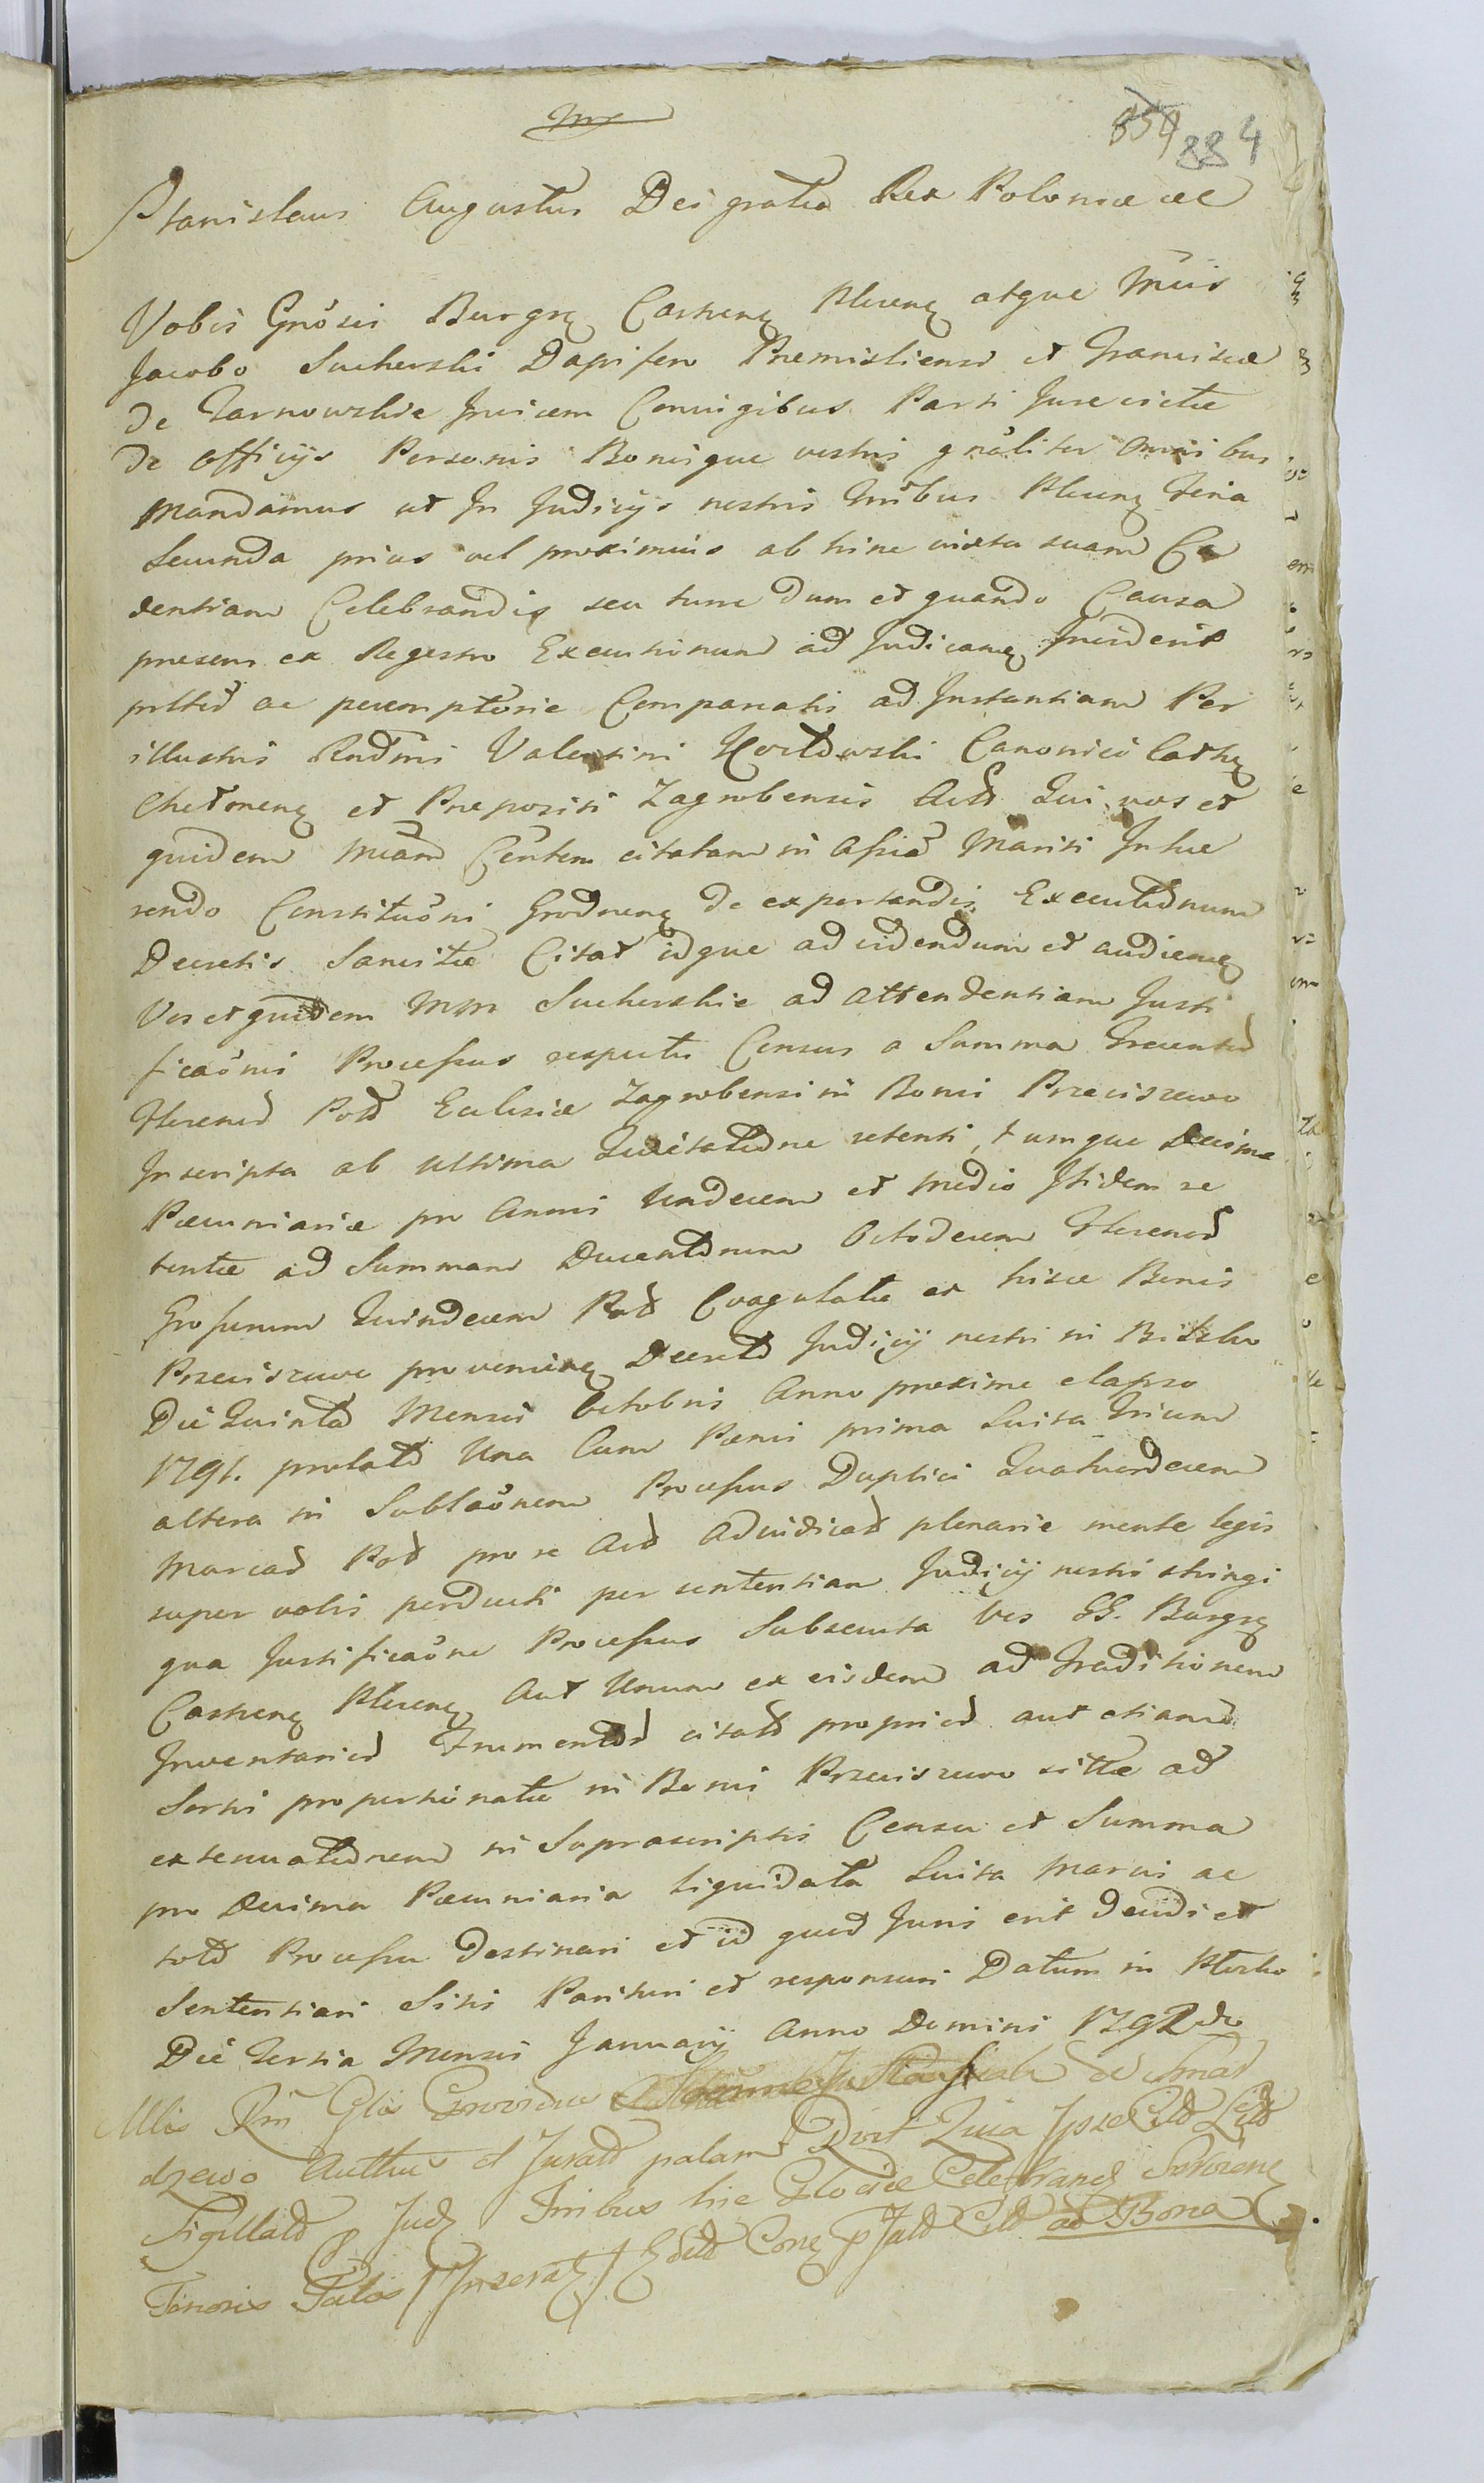 mx
854 884
Stanislaus Augustus Dei gratia Rex Poloniæ etc
Vobis Gnôsis Burgrę Castrenę Plocenę atque Mcis
Jacobo Sucherski Dapifero Premisliensi et Franciscæ
de Tarnowskie Invicem Conjugibus Parti Jure victæ
de officijs Personis Bonisque vestris gnâliter omnibus
Mandamus ut In Judicijs nostris Trribus Plocenę Feria
Secunda prius vel proximius ab hinc iuxta suam Ca
dentiam Celebrandis seu tunc dum et quando Causa
presens ex Regestro Executionum ad Judicanę Inciderit
prltèr ac peremptorie Compareatis ad Instantiam Per
illustris Rndmi Valentini Canonici Cathę
Chelmenę et Prepositi Zagrobensis Act Qui vos et
quidem Mcam Contem citatam in Assia Mariti Inhæ
rendo Constituôni Grodnenę de exportandis Executionum
Decretis Sancitæ Citat idque ad videndum et audienę
Vos et quidem Mm Sucherskie ad attendentiam Justi
ficaônis Processus respectu Census a Summa Trecento
Floreno Pol Ecclesiæ Zagrobensi in Bonis Przeciszewo
Inscripta ab ultima Quietatione retenti, tumque Decimæ
Pæcuniariæ pro Annis Undecem et medio Itidem re
tentæ ad Summam Ducentorum Octodecem Floreno
Grossorum Quindecem Pol Coagulatæ ex hisce Bonis
Przeciszewo provenienę Decreto Judicij nostri in Bielsko
Die Quinta Mensis Octobris Anno proxime elapso
1791. prolato Una Cum Pænis prima Luita Trium
altera in Sublaônem Processus Duplici Quatuordecem
Marcar Pol pro se Act Adiudicat plenarie mente legis
super vobis perducti per sententiam Judicij nostri stringi
qua Justificaône Processus Subsecuta Vos GG. Burgrę
Castrenę Plocenę Aut Unum ex eisdem ad Traditionem
Inventario Frumento citato proprio aut etiam
Sorti proportionatæ in Bonis Przeciszewo sittæ ad
extenuationem in Suprascriptis Censu et Summa
pro Decima Pæcuniaria liquidata Luita Marcis ac
toto Processu Destinari et id quod Juris erit Decidi et
Sententiari Sitis Parituri et responsuri Datum in Plocko
Die Tertia Mensis Januarij Anno Domini 1792do
Mlis Rni Glis Providus de Smar
dzewo Authûs et Jurat palam Quia Ipse
Sigillato p Jud Trribus hic Plociæ Celebrand
Tenoris Talis Inserat ad Bona